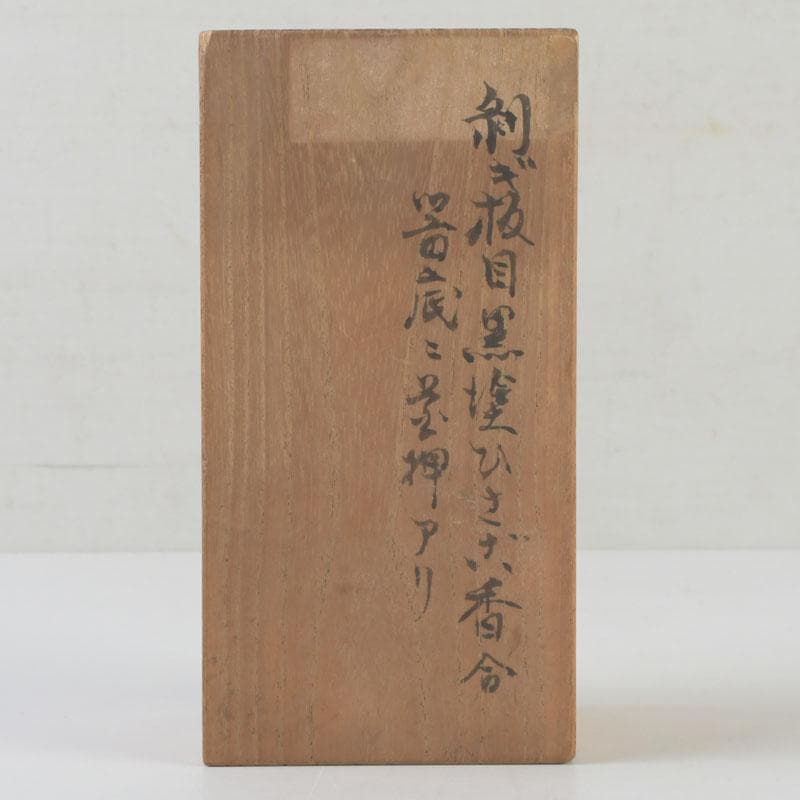 剝ぎ板目黒塗ひさご香合
器底ニ花押アリ